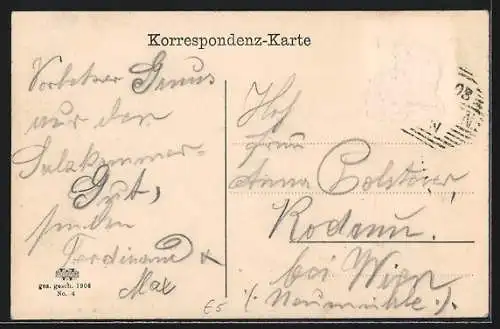 Korrespondenz-Karte
Vorletzter Gruss
aus dem
Salzkammer-
Gut,
senden
Ferdinand &
Max
ges. gesch. 1906
No. 4
E5
08
N
Frau
Anna
Rodaun
bei Wien
(Neumühle).